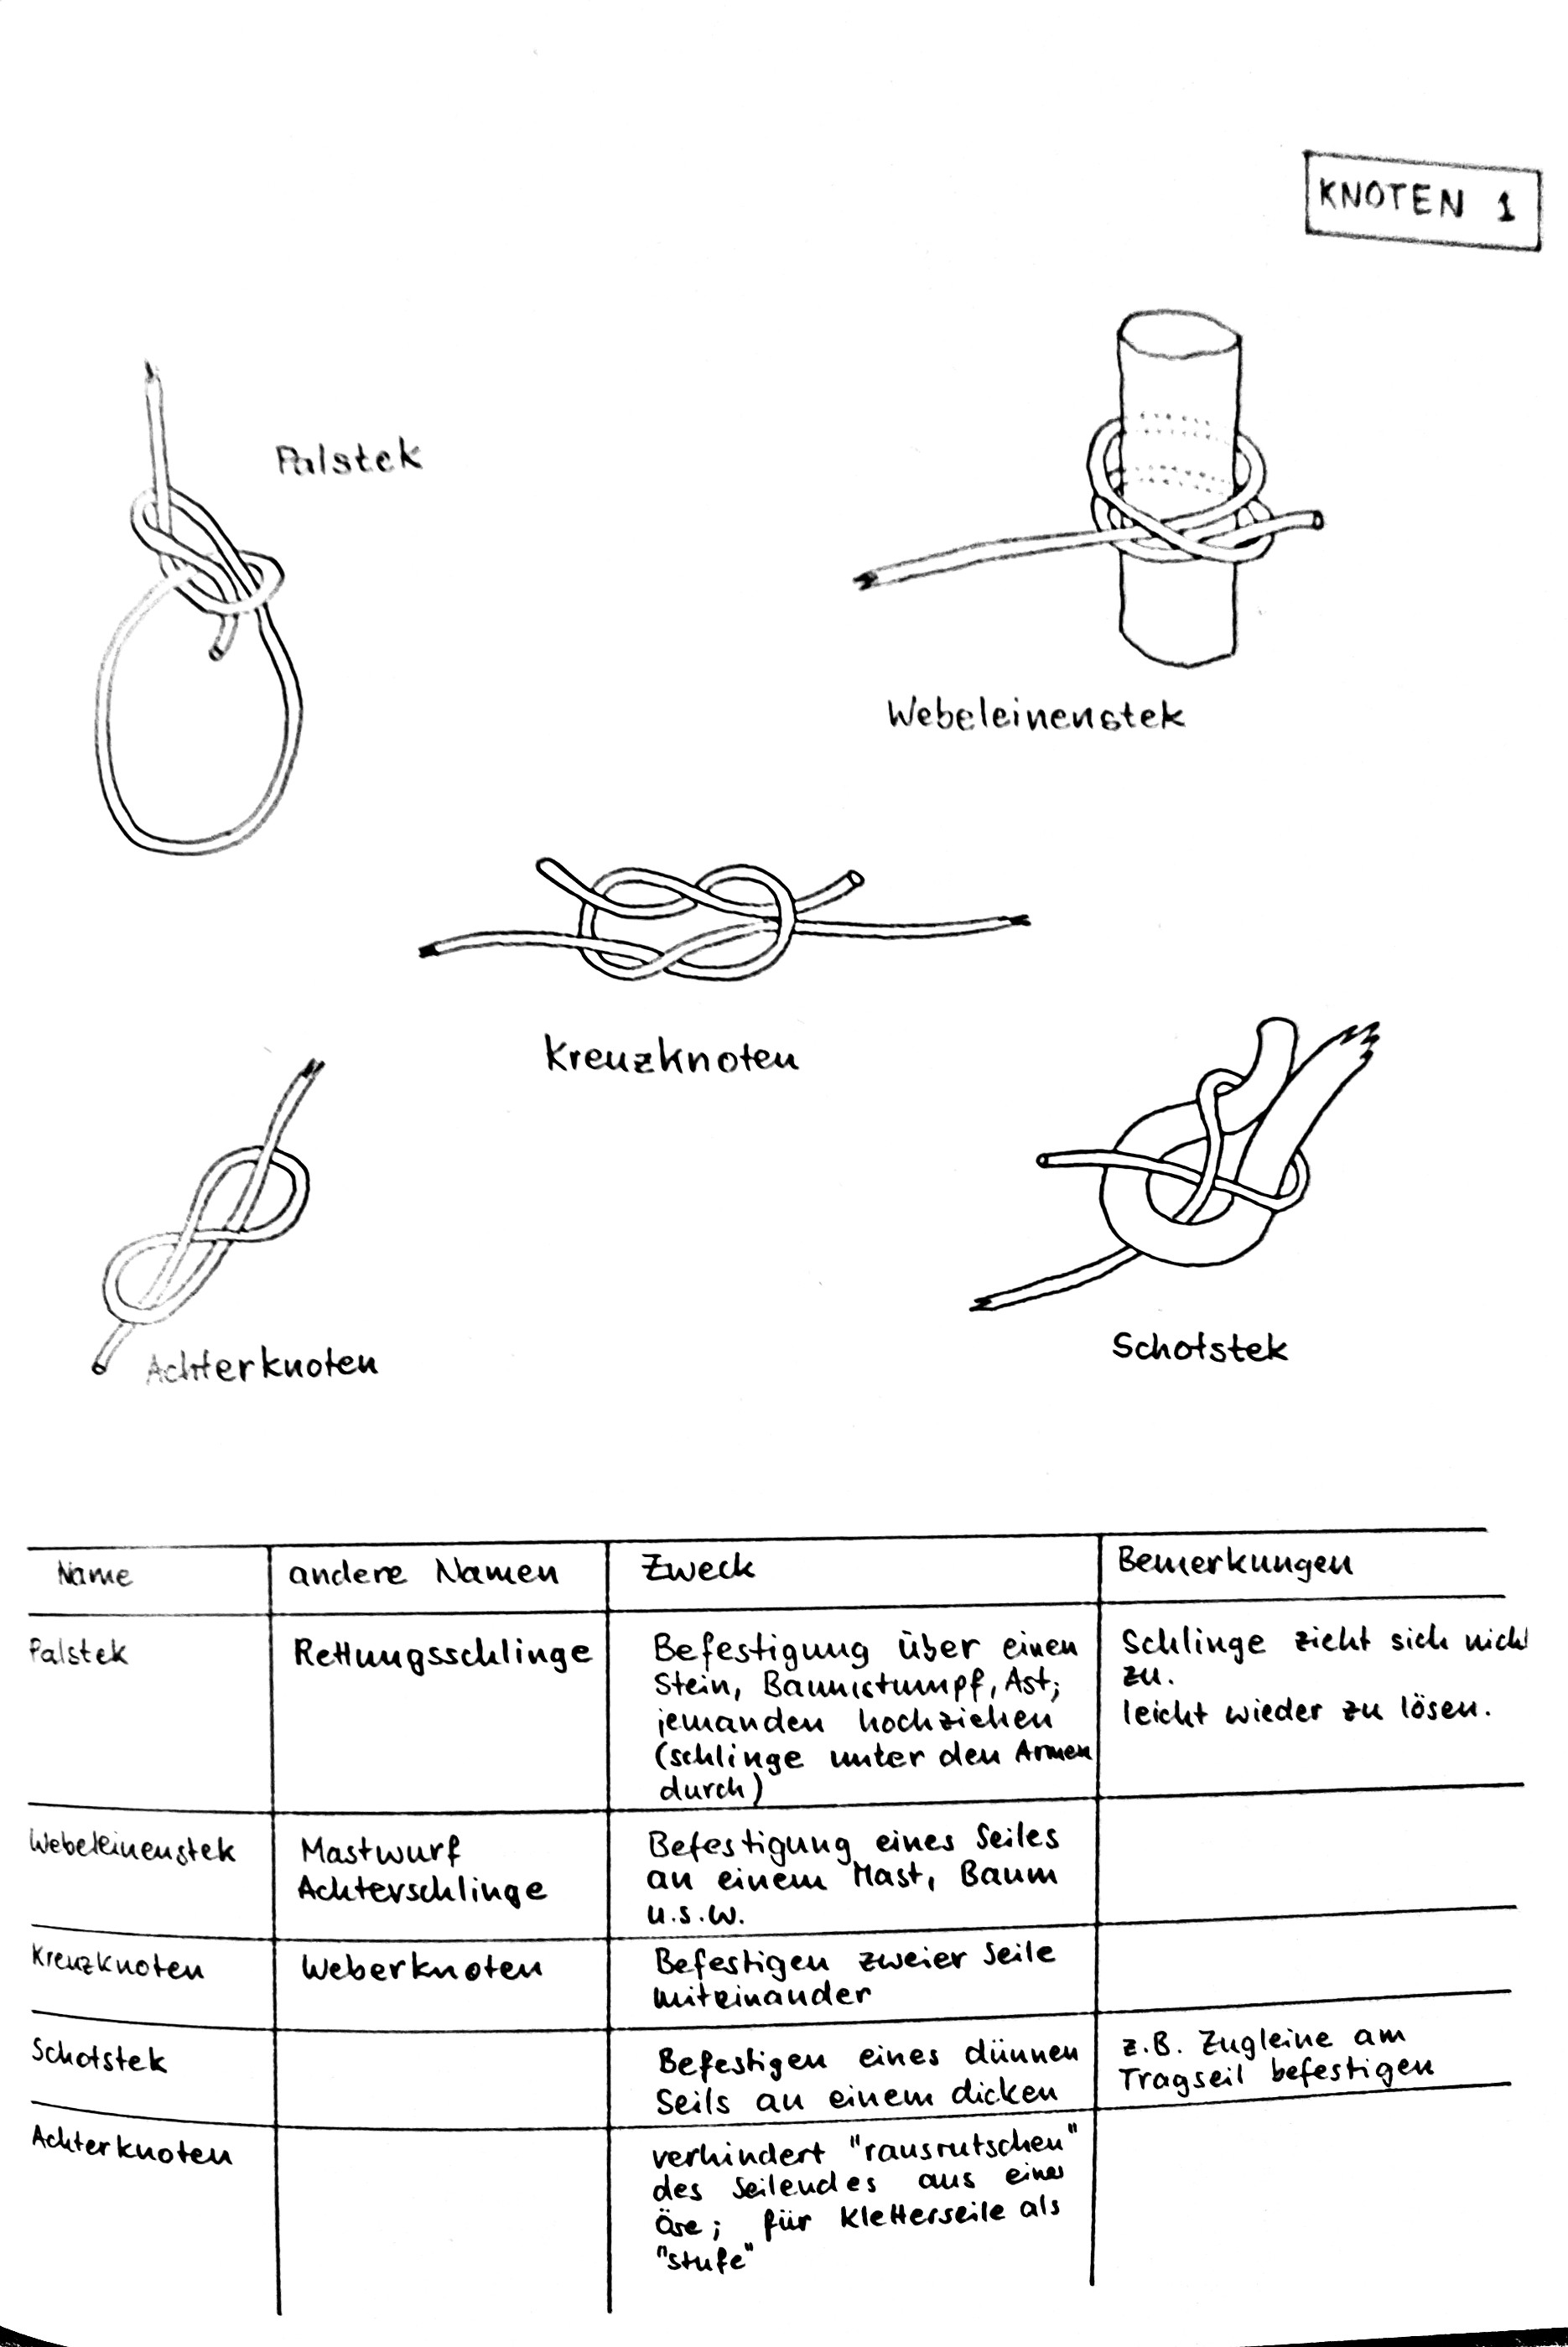 KNOTEN 1
Palstek
Webeleinenstek
Kreuzknoten
Achterknoten
Schotstek
Name
andere Namen
Zweck
Bemerkungen
Palstek
Rettungsschlinge
Befestigung über einen
Stein, Baumstumpf, Ast;
jemanden hochziehen
(schlinge unter den Armen
durch)
Schlinge zieht sich nich
zu.
leicht wieder zu lösen.
Webeleinenstek
Mastwurf
Achterschlinge
Befestigung eines Seiles
an einem Mast, Baum
u.s.w.
Kreuzknoten
Weberknoten
Befestigen zweier Seile
miteinander
Schotstek
Befestigen eines dünnen
Seils an einem dicken
z.B. Zugleine am
Tragseil befestigen
Achterknoten
verhindert "rausrutschen"
des Seilendes aus einer
Öse; für Kletterseile als
"stufe"